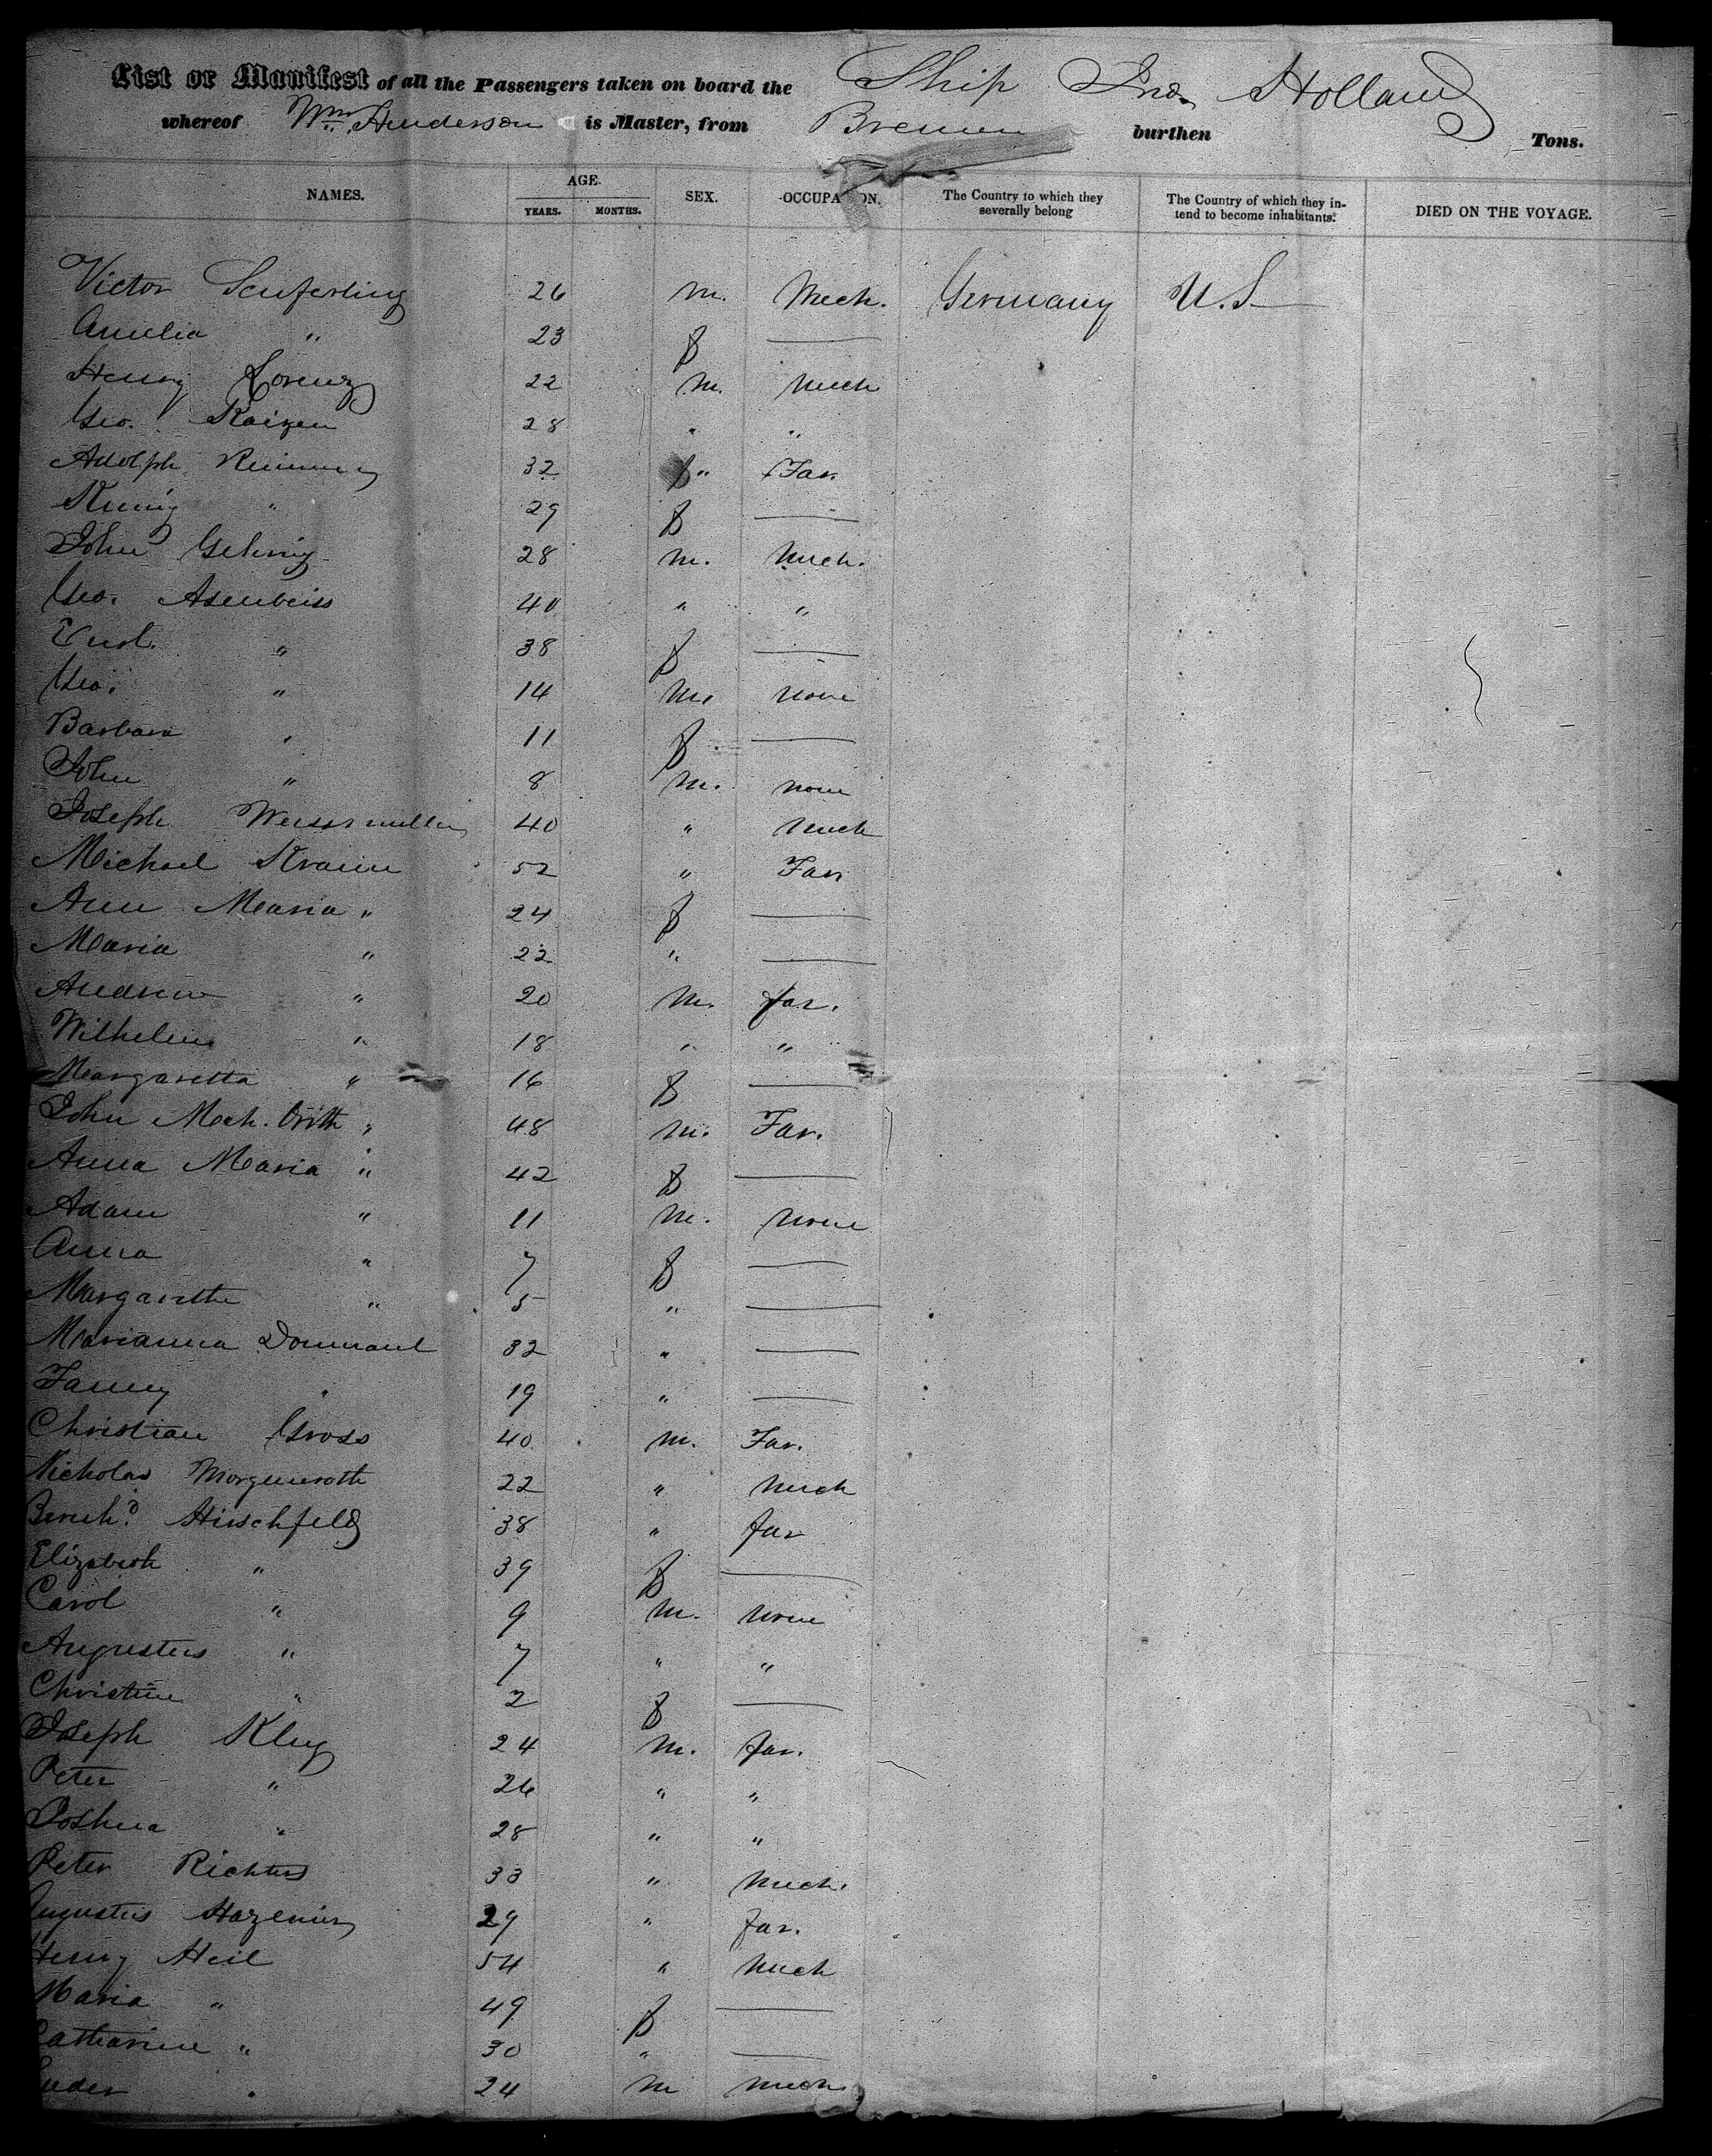 List or Manifest of all the Passengers taken on board the Ship Jno. Holland
whereof Wm. Anderson is Master, from Bremen burthen Tons.
NAMES. AGE. YEARS. MONTHS. SEX. OCCUPATION. The Country to which they severally belong The Country of which they intend to become inhabitants. DIED ON THE VOYAGE.
Victor Seuferling 26 m. Mech. Germany U.S.
Amelia " 23 f —
Henry Lorenz 22 m. Mech
Geo. Kaizen 28 " "
Adolph 32 " Far.
" 29 f —
John Gehrig 28 m. Mech.
Geo. Asenbeiss 40 " "
" 38 f —
Geo. " 14 m. none
Barbara " 11 f —
John " 8 m. none
Joseph Weissmuller 40 " Mech
Michael 52 " Far
Ann Maria " 24 f —
Maria " 22 " —
Andrew " 20 m. far.
Wilhelm " 18 " "
Margaretta " 16 f —
John Mech. " 48 m. Far.
Anna Maria " 42 f —
Adam " 11 m. none
Anna " 7 f —
Margarethe " 5 " —
Marianna 32 " —
Fanny " 19 " —
Christian Gross 40 m. Far.
Nicholas Morgenroth 22 " Mech
Bernhd. Hirschfeld 38 " far
Elizabeth " 39 f —
Carol " 9 m. none
Augustus " 7 " "
Christine " 2 f —
Joseph Klug 24 m. far.
Peter " 26 " "
Joshua " 28 " "
Peter Richters 33 " Mech.
Augustus 29 " far.
Henry Heil 54 " Mech
Maria " 49 f —
Catharine " 30 " —
" 24 m Mech